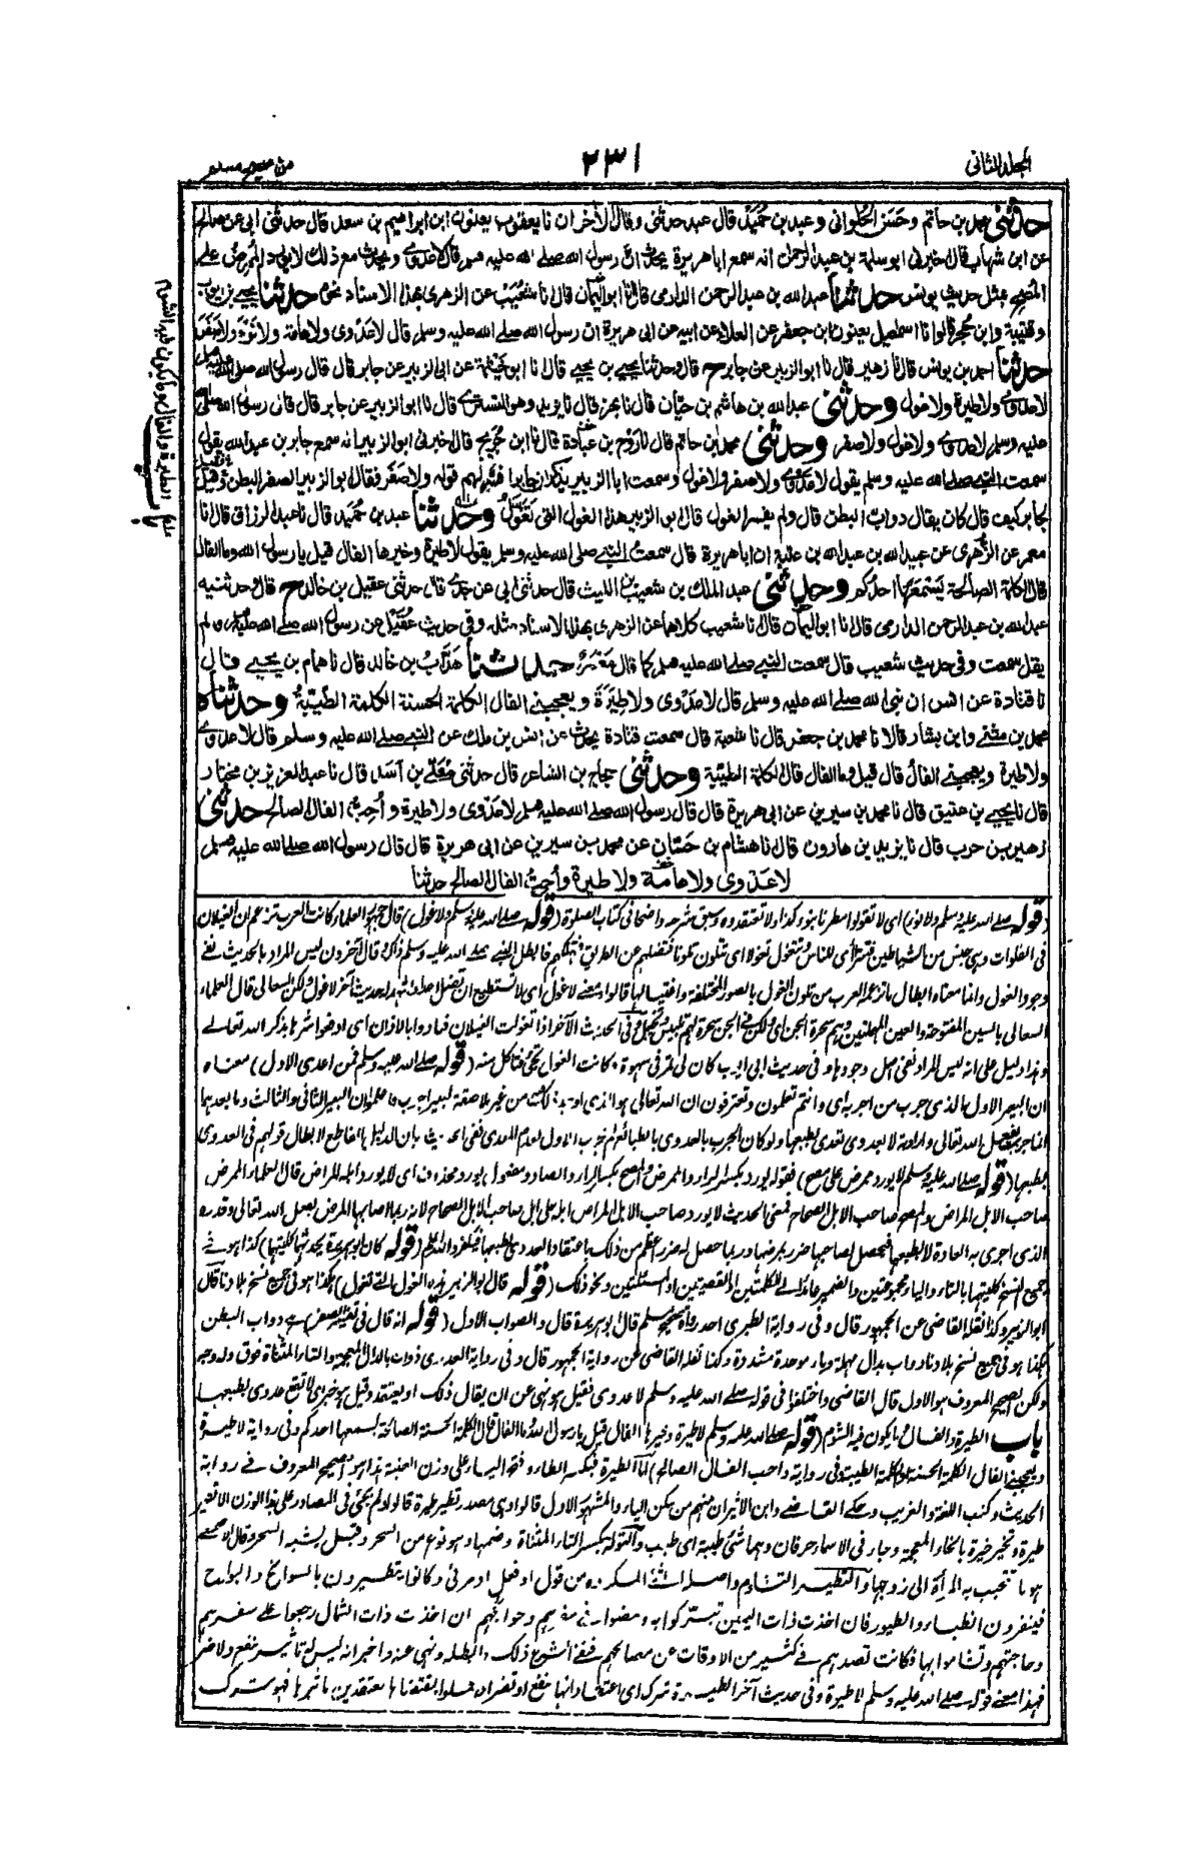 المجلد الثاني
٢٣١
من صحيح مسلم
حدثني محمد بن حاتم وحسن الحلواني وعبد بن حميد قال عبد حدثني وقال الآخران نا يعقوب يعنون ابن ابراهيم بن سعد قال حدثني ابي عن صالح
عن ابن شهاب قال اخبرني ابو سلمة بن عبد الرحمن انه سمع ابا هريرة يحدث ان رسول الله صلى الله عليه وسلم قال لا عدوى ويحدث مع ذلك لا يورد الممرض على
المصح بمثل حديث يونس حدثنا عبد الله بن عبد الرحمن الدارمي قال انا ابو اليمان قال نا شعيب عن الزهري بهذا الاسناد نحوه حدثنا يحيى بن ايوب
وقتيبة وابن حجر قالوا نا اسمعيل يعنون ابن جعفر عن العلاء عن ابيه عن ابي هريرة ان رسول الله صلى الله عليه وسلم قال لا عدوى ولا هامة ولا نوء ولا صفر
حدثنا احمد بن يونس قال نا زهير قال نا ابو الزبير عن جابر ح قال وحدثنا يحيى بن يحيى قال انا ابو خيثمة عن ابي الزبير عن جابر قال قال رسول الله صلى الله عليه وسلم
لا عدوى ولا طيرة ولا غول وحدثني عبد الله بن هاشم بن حيان قال نا بهز قال نا يزيد وهو التستري قال نا ابو الزبير عن جابر قال قال رسول الله صلى الله
عليه وسلم لا عدوى ولا غول ولا صفر وحدثني محمد بن حاتم قال نا روح بن عبادة قال نا ابن جريج قال اخبرني ابو الزبير انه سمع جابر بن عبد الله يقول
سمعت النبي صلى الله عليه وسلم يقول لا عدوى ولا صفر ولا غول وسمعت ابا الزبير يذكر ان جابرا فسر لهم قوله ولا صفر فقال ابو الزبير الصفر البطن فقيل
لجابر كيف قال كان يقال دواب البطن قال ولم يفسر الغول قال ابو الزبير هذا الغول التي تغول وحدثنا عبد بن حميد قال نا عبد الرزاق قال انا
معمر عن الزهري عن عبيد الله بن عبد الله بن عتبة ان ابا هريرة قال سمعت النبي صلى الله عليه وسلم يقول لا طيرة وخيرها الفال قيل يا رسول الله وما الفال
قال الكلمة الصالحة يسمعها احدكم وحدثني عبد الملك بن شعيب بن الليث قال حدثني ابي عن جدي قال حدثني عقيل بن خالد ح قال وحدثنيه
عبد الله بن عبد الرحمن الدارمي قال انا ابو اليمان قال نا شعيب كلاهما عن الزهري بهذا الاسناد مثله وفي حديث عقيل عن رسول الله صلى الله عليه وسلم ولم
يقل سمعت وفي حديث شعيب قال سمعت النبي صلى الله عليه وسلم كما قال معمر حدثنا هداب بن خالد قال نا همام بن يحيى قال
نا قتادة عن انس ان نبي الله صلى الله عليه وسلم قال لا عدوى ولا طيرة ويعجبني الفال الكلمة الحسنة الكلمة الطيبة وحدثناه
محمد بن مثنى وابن بشار قالا نا محمد بن جعفر قال نا شعبة قال سمعت قتادة يحدث عن انس بن ملك عن النبي صلى الله عليه وسلم قال لا عدوى
ولا طيرة ويعجبني الفال قال قيل وما الفال قال الكلمة الطيبة وحدثني حجاج بن الشاعر قال حدثني معلى بن اسد قال نا عبد العزيز بن مختار
قال نا يحيى بن عتيق قال نا محمد بن سيرين عن ابي هريرة قال قال رسول الله صلى الله عليه وسلم لا عدوى ولا طيرة واحب الفال الصالح حدثني
زهير بن حرب قال نا يزيد بن هارون قال نا هشام بن حسان عن محمد بن سيرين عن ابي هريرة قال قال رسول الله صلى الله عليه وسلم
لا عدوى ولا هامة ولا طيرة واحب الفال الصالح حدثنا
باب الطيرة والفال وما يكون فيه الشوم
(قوله صلى الله عليه وسلم ولا نوء) اي لا تقولوا مطرنا بنوء كذا ولا تعتقدوه وسبق شرحه واضحا في كتاب الصلوة (قوله صلى الله عليه وسلم ولا غول) قال جمهور العلماء كانت العرب تزعم ان الغيلان
في الفلوات وهي جنس من الشياطين فتتراءى للناس وتتغول تغولا اي تتلون تلونا فتضلهم عن الطريق فتهلكهم فابطل النبي صلى الله عليه وسلم ذاك وقال آخرون ليس المراد بالحديث نفي
وجود الغول وانما معناه ابطال ما تزعمه العرب من تلون الغول بالصور المختلفة واغتيالها قالوا ومعنى لا غول اي لا تستطيع ان تضل احدا ويشهد له حديث آخر لا غول ولكن السعالي قال العلماء
السعالي بالسين المفتوحة والعين المهملتين وهم سحرة الجن اي ولكن في الجن سحرة لهم تلبيس وتخييل وفي الحديث الآخر اذا تغولت الغيلان فنادوا بالاذان اي ادفعوا شرها بذكر الله تعالى
وهذا دليل على انه ليس المراد نفي اصل وجودها وفي حديث ابي ايوب كان لي تمر في سهوة وكانت الغول تجيء فتأكل منه (قوله صلى الله عليه وسلم فمن اعدى الاول) معناه
ان البعير الاول الذي جرب من اجربه اي وانتم تعلمون وتعترفون ان الله تعالى هو الذي اوجد ذلك من غير ملاصقة لبعير اجرب فاعلموا ان البعير الثاني والثالث وما بعدهما
انما جرب بفعل الله تعالى وارادته لا بعدوى تعدي بطبعها ولو كان الجرب بالعدوى بالطبائع لم يجرب الاول لعدم المعدي ففي الحديث بيان الدليل القاطع لابطال قولهم في العدوى
بطبعها (قوله صلى الله عليه وسلم لا يورد ممرض على مصح) فقوله يورد بكسر الراء والممرض والمصح بكسر الراء والصاد ومفعول يورد محذوف اي لا يورد ابله المراض قال العلماء الممرض
صاحب الابل المراض والمصح صاحب الابل الصحاح فمعنى الحديث لا يورد صاحب الابل المراض ابله على ابل صاحب الابل الصحاح لانه ربما اصابها المرض بفعل الله تعالى وقدره
الذي اجرى به العادة لا بطبعها فيحصل لصاحبها ضرر بمرضها وربما حصل له ضرر اعظم من ذلك باعتقاد العدوى بطبعها فيكفر والله اعلم (قوله كان ابو هريرة يحدثهما كلتيهما) كذا هو في
جميع النسخ كلتيهما بالتاء والياء مجموعتين والضمير عائد الى الكلمتين او القصتين او المسئلتين ونحو ذلك (قوله قال ابو الزبير هذه الغول التي تغول) هكذا هو في جميع نسخ بلادنا قال
ابو الزبير وكذا نقله القاضي عن الجمهور قال وفي رواية الطبري احد رواة صحيح مسلم قال ابو هريرة قال والصواب الاول (قوله انه قال في تفسير الصفر) هي دواب البطن
هكذا هو في جميع نسخ بلادنا دواب بدال مهملة وباء موحدة مشددة وكذا نقله القاضي عن رواية الجمهور قال وفي رواية العذري ذوات بالذال المعجمة والتاء المثناة فوق وله وجه
ولكن الصحيح المعروف هو الاول قال القاضي واختلفوا في قوله صلى الله عليه وسلم لا عدوى فقيل هو نهي عن ان يقال ذلك او يعتقد وقيل هو خبر اي لا تقع عدوى بطبعها
باب الطيرة والفال وما يكون فيه الشوم (قوله صلى الله عليه وسلم لا طيرة وخيرها الفال قيل يا رسول الله وما الفال قال الكلمة الحسنة الصالحة يسمعها احدكم وفي رواية لا طيرة
ويعجبني الفال الكلمة الحسنة والكلمة الطيبة وفي رواية واحب الفال الصالح) اما الطيرة فبكسر الطاء وفتح الياء على وزن العنبة هذا هو الصحيح المعروف في رواية
الحديث وكتب اللغة والغريب وحكى القاضي وابن الاثير ان منهم من سكن الياء والمشهور الاول قالوا وهي مصدر تطير طيرة قالوا ولم يجئ في المصادر على هذا الوزن الا تطير
طيرة وتخير خيرة بالخاء المعجمة وجاء في الاسماء حرفان وهما شيء طيبة اي طيب والتولة بكسر التاء المثناة وضمها وهو نوع من السحر وقيل يشبه السحر وقال الاصمعي
هو ما تتحبب به المرأة الى زوجها والتطير التشاؤم واصله الشيء المكروه من قول او فعل او مرئي وكانوا يتطيرون بالسوانح والبوارح
فينفرون الظباء والطيور فان اخذت ذات اليمين تبركوا به ومضوا في سفرهم وحوائجهم وان اخذت ذات الشمال رجعوا على سفرهم
وحاجتهم وتشاءموا بها فكانت تصدهم في كثير من الاوقات عن مصالحهم فنفى الشرع ذلك وابطله ونهى عنه واخبر انه ليس له تأثير بنفع ولا ضر
فهذا معنى قوله صلى الله عليه وسلم لا طيرة وفي حديث آخر الطيرة شرك اي اعتقاد انها تنفع او تضر اذ عملوا بمقتضاها معتقدين تأثيرها فهو شرك